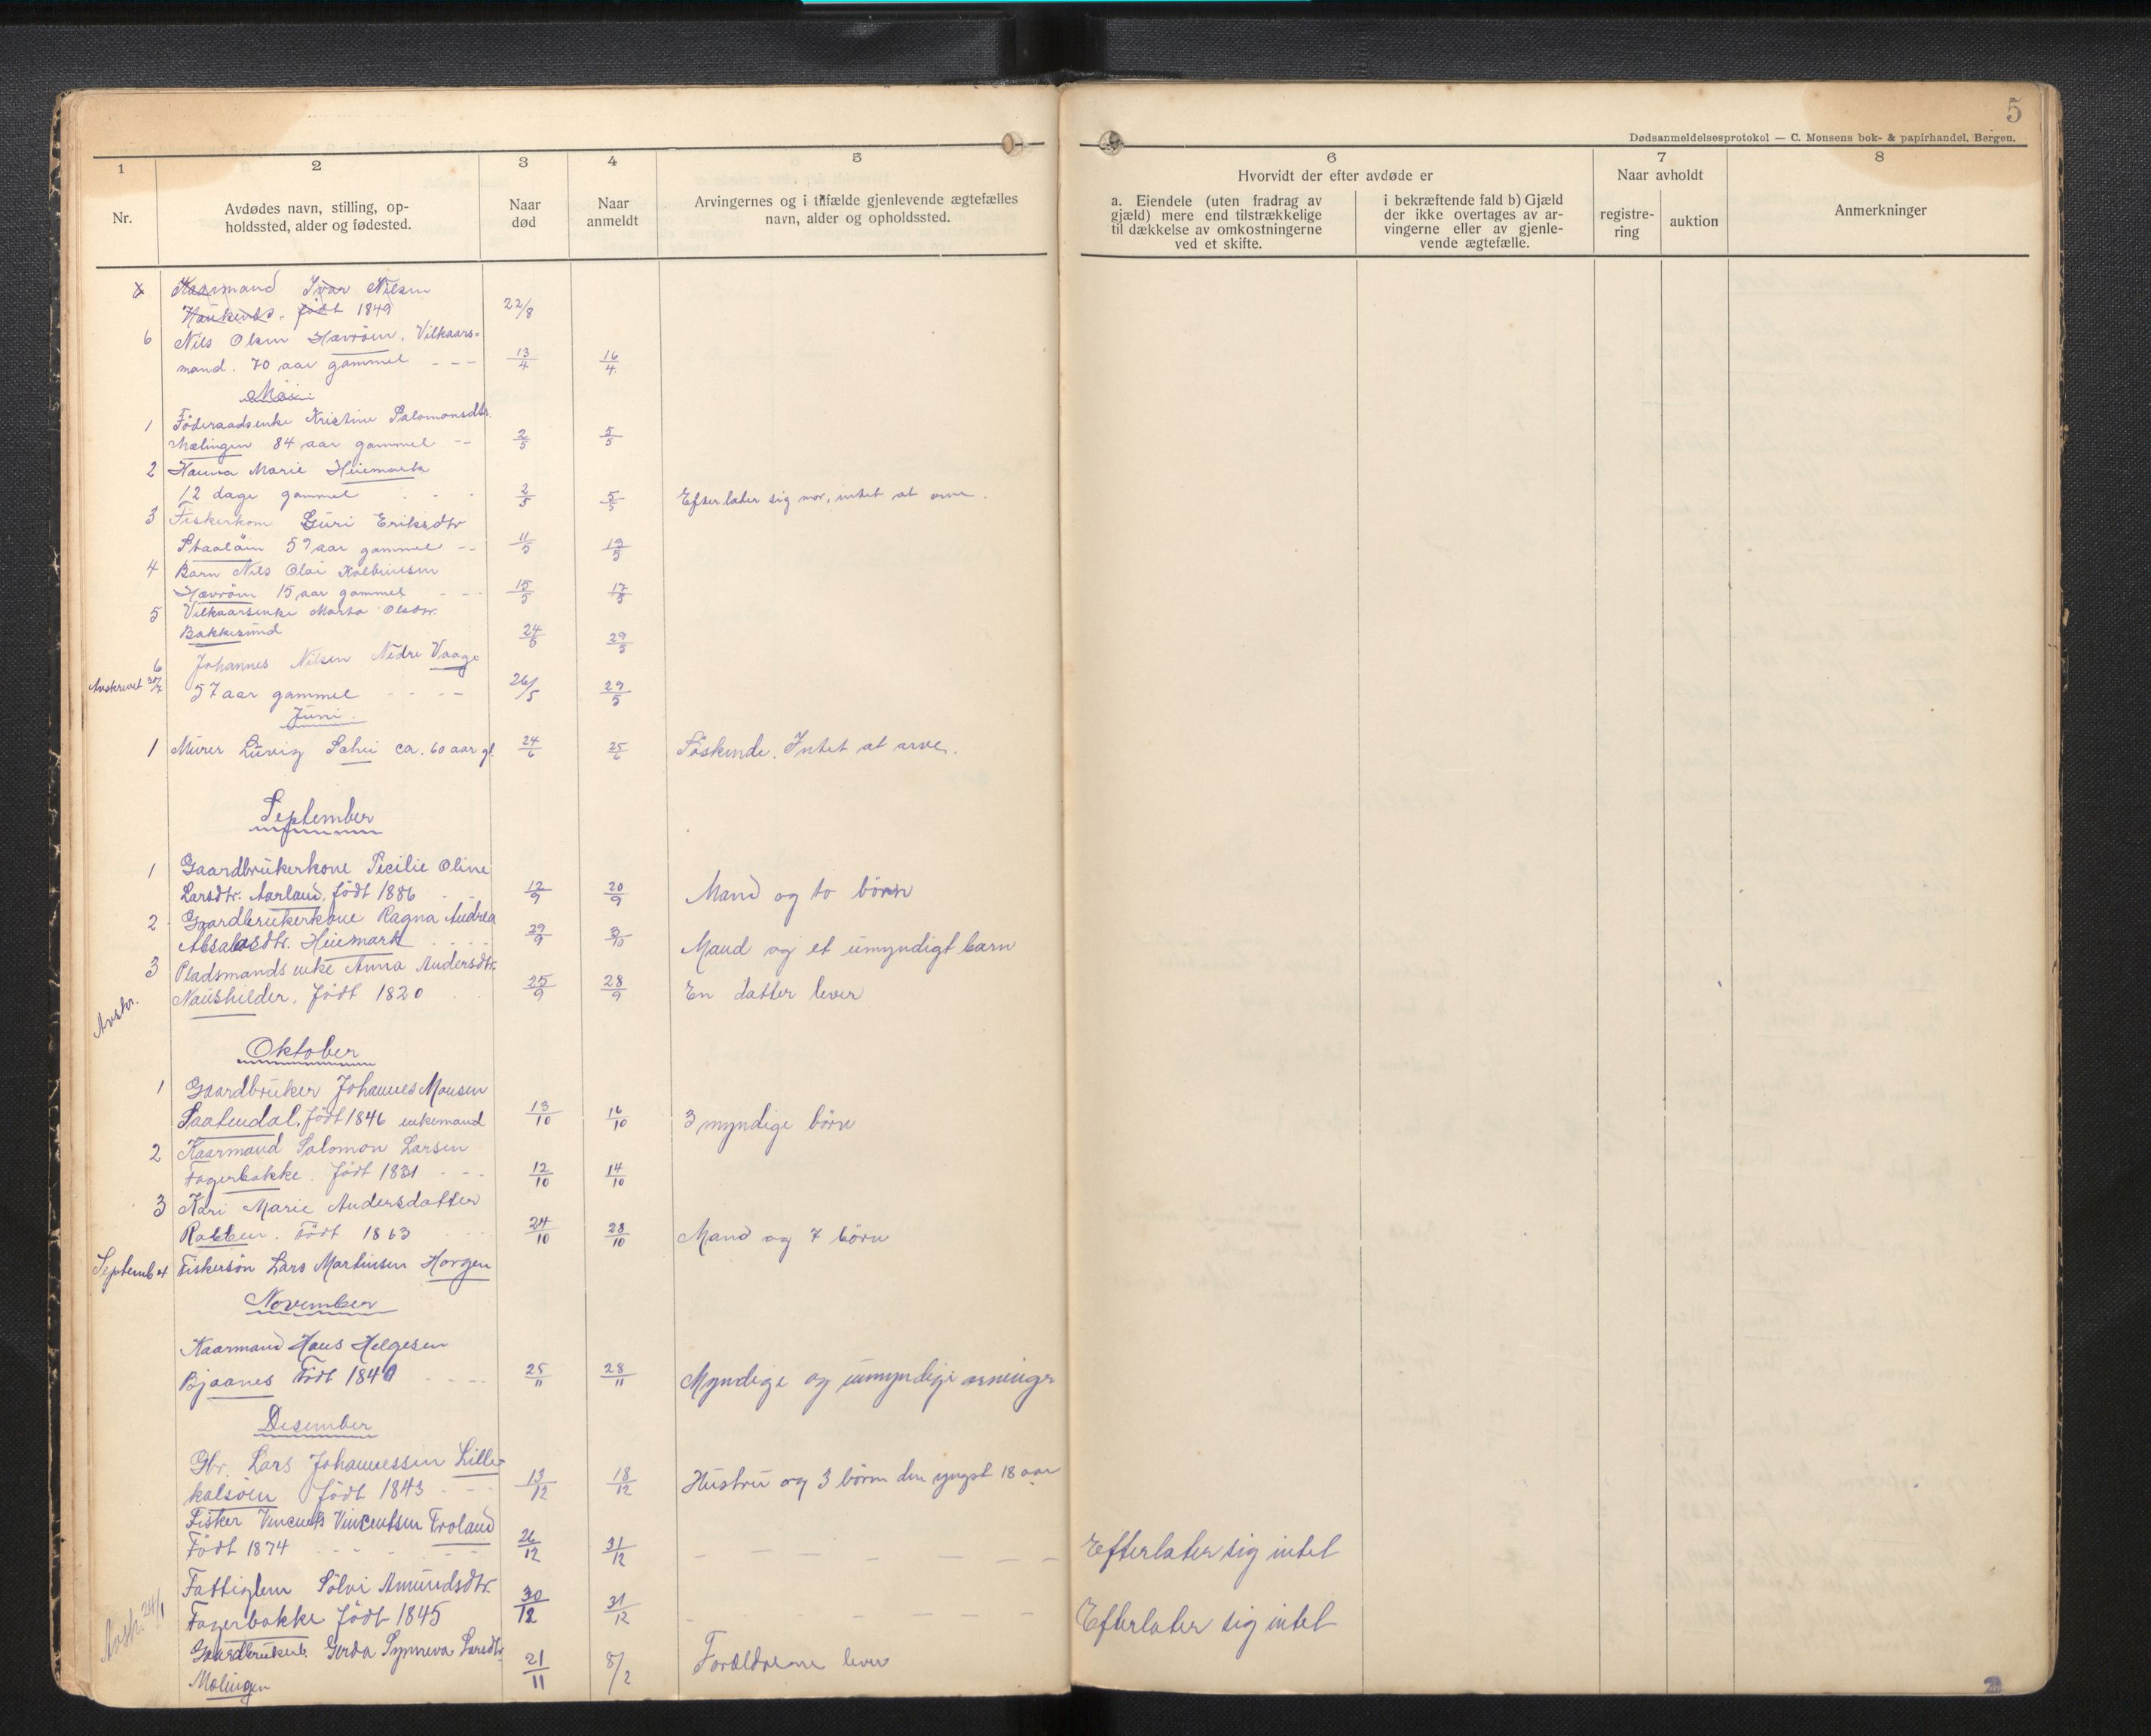 5
Dødsanmeldelsesprotokol — C. Monsens bok- & papirhandel, Bergen.
1 2 3 4 5 6 7 8
Nr.
Avdødes navn, stilling, op-
holdssted, alder og fødested.
Naar
død
Naar
anmeldt
Arvingernes og i tilfælde gjenlevende ægtefælles
navn, alder og opholdssted.
Hvorvidt der efter avdøde er
a. Eiendele (uten fradrag av
gjæld) mere end tilstrækkelige
til dækkelse av omkostningerne
ved et skifte.
i bekræftende fald b) Gjæld
der ikke overtages av ar-
vingerne eller av gjenle-
vende ægtefælle.
Naar avholdt
registre-
ring
auktion
Anmerkninger
Kaarmand Ivar Nilsen
Haukenes. født 1849 22/8
6 Nils Olsen Hævröen, Vilkaars-
mand. 70 aar gammel - - - 13/4 16/4
Mai
1 Föderaadsenke Kristine Salomonsdtr.
Mælingen 84 aar gammel -- 2/5 5/5
2 Hanna Marie Heiemark
12 dage gammel 2/5 5/5 Efterlater sig mor, intet at arve.
3 Fiskerkom Guri Eriksdtr
59 aar gammel -- 11/5 19/5
4 Barn Nils Olai
Hævröen 15 aar gammel 15/5 17/5
5 Vilkaarsenke Marta Olsdtr.
Bakkesund 24/5 29/5
6 Johannes Nilsen Nedre Vaage
Avskrevet 30/7 57 aar gammel - - - - 26/5 29/5
Juni.
1 Murer Luvig Schei ca. 60 aar gl. 24/6 25/6 Söskende. Intet at arve.
September
1 Gaardbrukerkone Secilie Oline
Larsdtr. Aarland, födt 1886 12/9 20/9 Mand og to börn
2 Gaardbrukerkone Ragna Andrea
Absalosdtr. Heiemark 29/9 3/10 Mand og et umyndigt barn
3 Pladsmandsenke Anna Andersdtr.
Avskr. Naushilder. Födt 1820 25/9 28/9 En datter lever
Oktober
1 Gaardbruker Johannes Monsen
Saatendal. födt 1846 enkemand 13/10 16/10 3 myndige börn
2 Kaarmand Salomon Larsen
Fagerbakke. födt 1831 - - - 12/10 14/10
3 Kari Marie Andersdatter
Rabben. Födt 1863 24/10 28/10 Mand og 7 börn
Septemb 4 Fiskersön Lars Martinsen Horgen
November
Kaarmand Hans Helgesen
Bjaanes Födt 1840 - - - - 25/11 28/11 Myndige og umyndige arvinger
Desember
Gbr. Lars Johannessen Lille-
kalsöen födt 1843 - - - 13/12 18/12 Hustru og 3 börn den yngst 18 aar
Fisker Vincents Vincentsen Troland
Födt 1874 - - - - - 26/12 31/12 - - - - - - - Efterlater sig intet
Fattiglem Sölvi Amundsdtr.
Avsk. 24/1 Fagerbakke födt 1845 30/12 31/12 - - - - - Efterlater sig intet
Gaardbrukerb. Gerda Synneva Larsdtr.
Mælingen 21/11 8/2 Forældrene lever